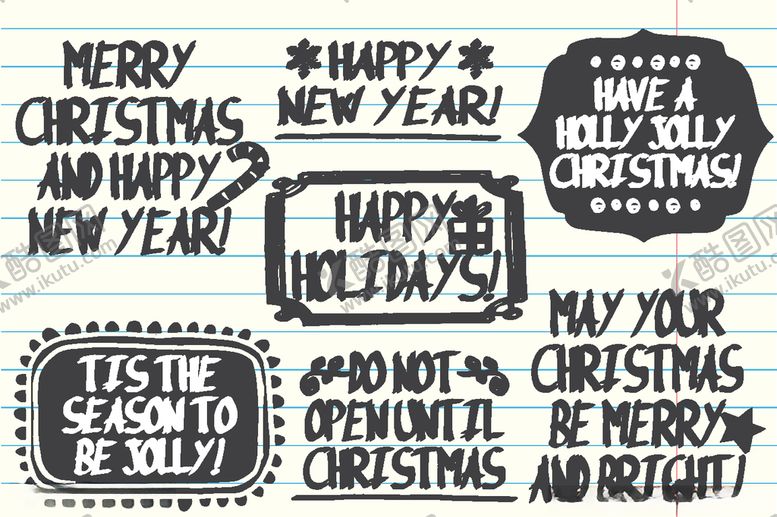 MERRY
CHRISTMAS
AND HAPPY
NEW YEAR!
HAPPY
NEW YEAR!
HAVE A
HOLLY JOLLY
CHRISTMAS!
HAPPY
HOLIDAYS!
TIS THE
SEASON TO
BE JOLLY!
DO NOT
OPEN UNTIL
CHRISTMAS
MAY YOUR
CHRISTMAS
BE MERRY
AND BRIGHT!
酷图网
www.ikutu.com